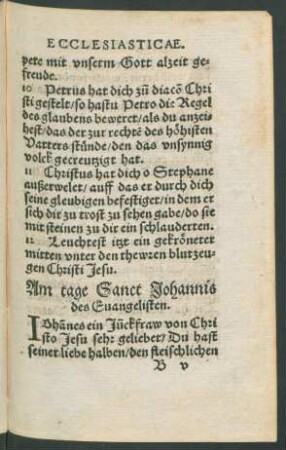 ECCLESIASTICAE.
pete mit vnserm Gott alzeit ge-
freude.
10 Petrus hat dich zů diacõ Chri
sti gestelt/so hastu Petro die Regel
des glaubens beweret/als du anzei-
hest/das der zur rechtẽ des höhisten
Vatters stünde/den das vnsynnig
volck gecreutzigt hat.
11 Christus hat dich o Stephane
außerwelet/auff das er durch dich
seine gleubigen befestiget/in dem er
sich dir zu trost zu sehen gabe/do sie
mit steinen zu dir ein schlauderten.
12 Leuchtest itzt ein gekröneter
mitten vnter den thewren blutzeu-
gen Christi Jesu.
Am tage Sanct Johannis
des Euangelisten.
IOhãnes ein Jückfraw von Chri
sto Jesu sehr geliebet/Du hast
seiner liebe halben/den fleischlichen
B v